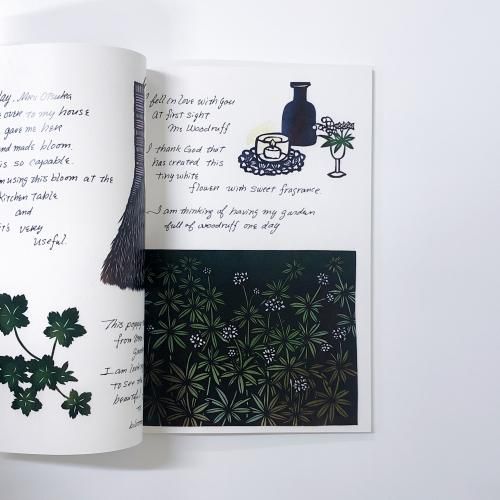 day, Mrs Otsuka
over to my house
gave me her
and made bloom.
is so capable.
m using this bloom at the
kitchen table
and
it's very
useful.
This poppy
from
I am
to see the
beautiful
to
bloom
I fell in love with you
at first sight
Mr, Woodruff
I thank God that
has created this
tiny white
flower with sweet fragrance.
I am thinking of having my garden
full of woodruff one day